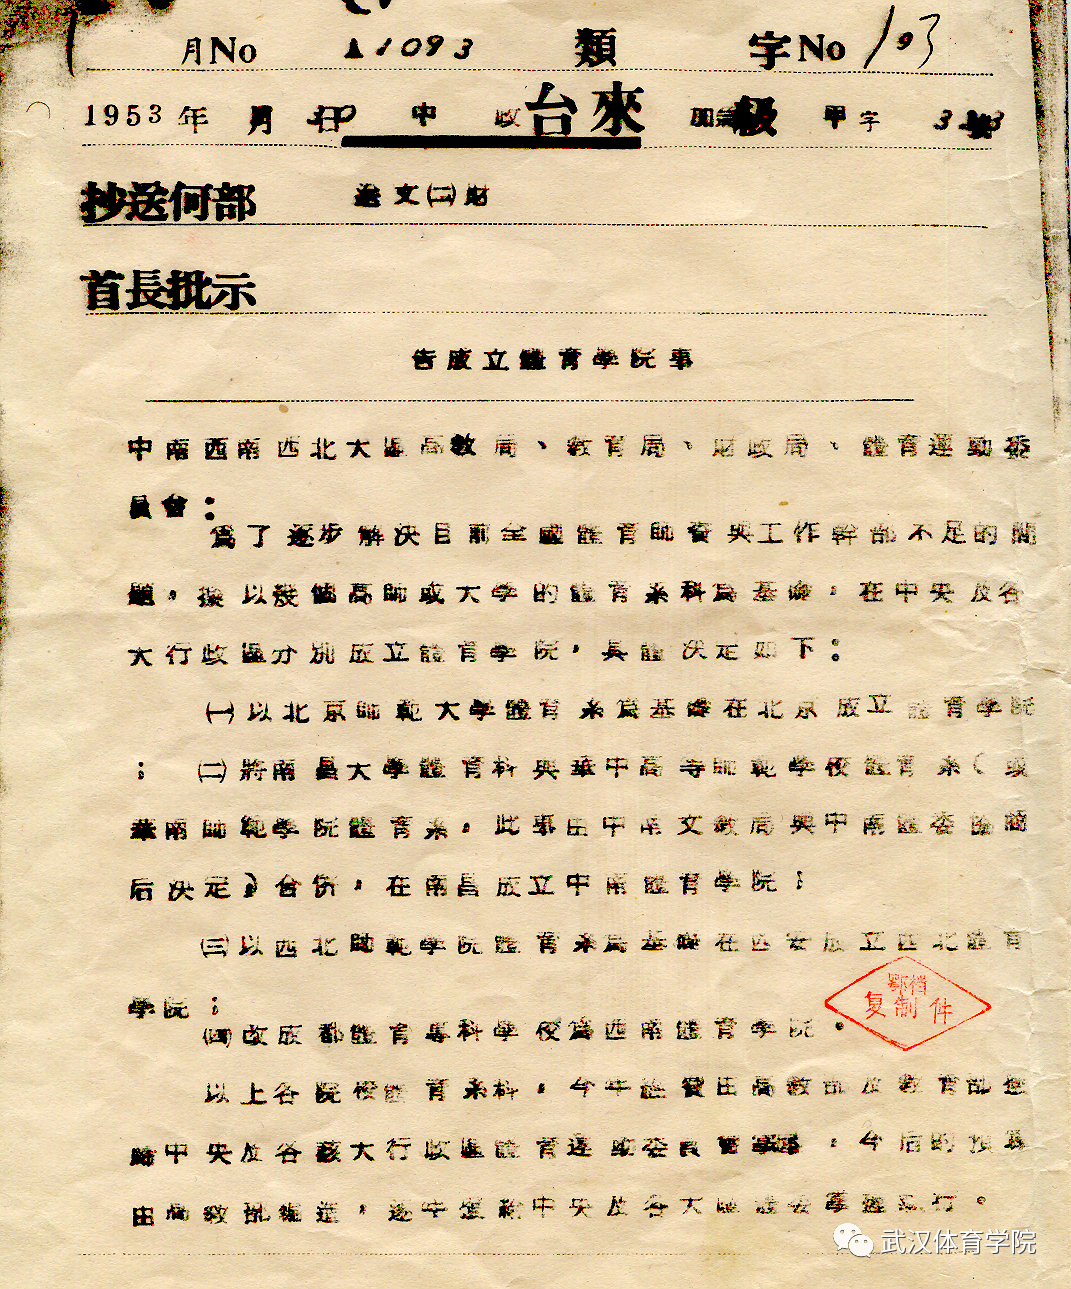 月No 1093 類 字No 103
1953年 月 日 中 收 台來 加 級 甲字 3 號
抄送何部 送文㈡財
首長批示
告成立體育學院事
中南西南西北大區高教局、教育局、財政局、體育運動委
員會：
爲了逐步解決目前全國體育師資與工作幹部不足的問
題，擬以幾個高師或大学的體育系科爲基礎，在中央及各
大行政區分別成立體育學院，具體決定如下：
㈠以北京師範大學體育系爲基礎在北京成立體育學院
；㈡將南昌大學體育科與華中高等師範學校體育系（或
華南師範學院體育系，此事由中南文教局與中南體委協商
后決定）合併，在南昌成立中南體育學院；
㈢以西北師範學院體育系爲基礎在西安成立西北體育
學院；
㈣改成都體育專科學校爲西南體育學院。
以上各院校體育系科，今年經費由高教部及教育部
中央及各該大行政區體育運動委員會，今后的預算
由高教部編造，逐年 中央及各大區體委 執行。
鄂档
复制件
武汉体育学院